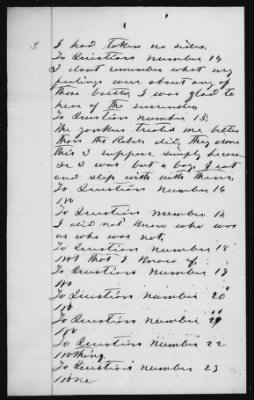 3
I had taken no sides.
To Question number 14
I dont remember what my
feelings were about any of
those battles, I was glad to
hear of the surrender
To Question number 15
The yankees treated me better
than the Rebels did, they done
this I suppose simply because
as I was but a boy, I eat
and slep with with them,
To Question Number 16
No
To Question number 17
I did not know who was
or who was not,
To Question number 18
not that I know of,
To Question number 19
No
To Question number 20
No
To Question number 21
No
To Question number 22
nothing
To Question number 23
none